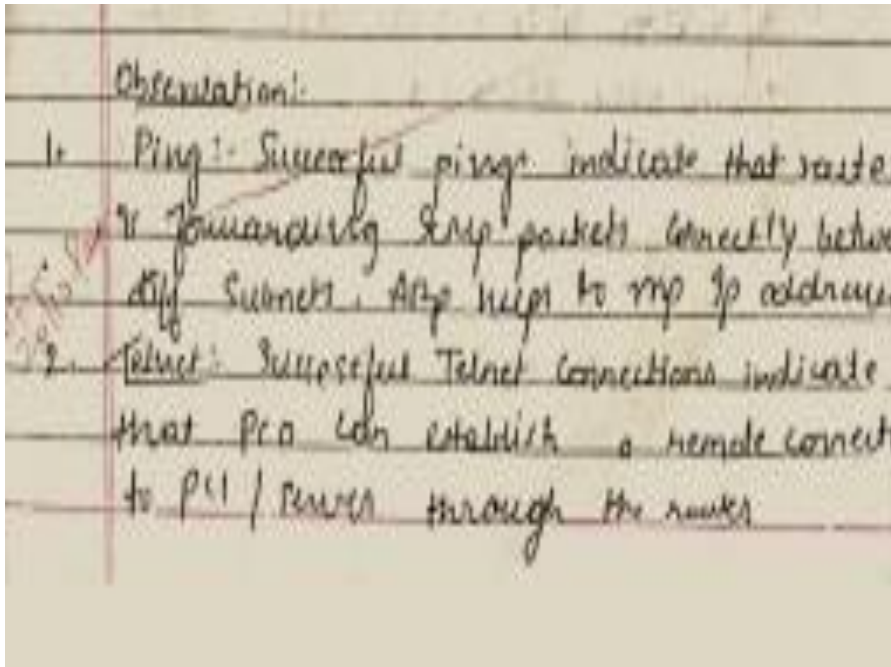 Observation:-
1. Ping:- Successful pings indicate that route
is forwarding ICMP packets correctly betwe
diff subnets. ARP helps to mp Ip address
2. Telnet:- Successful Telnet Connections indicate
that PC0 can establish a remote connect
to PC1 / server through the router